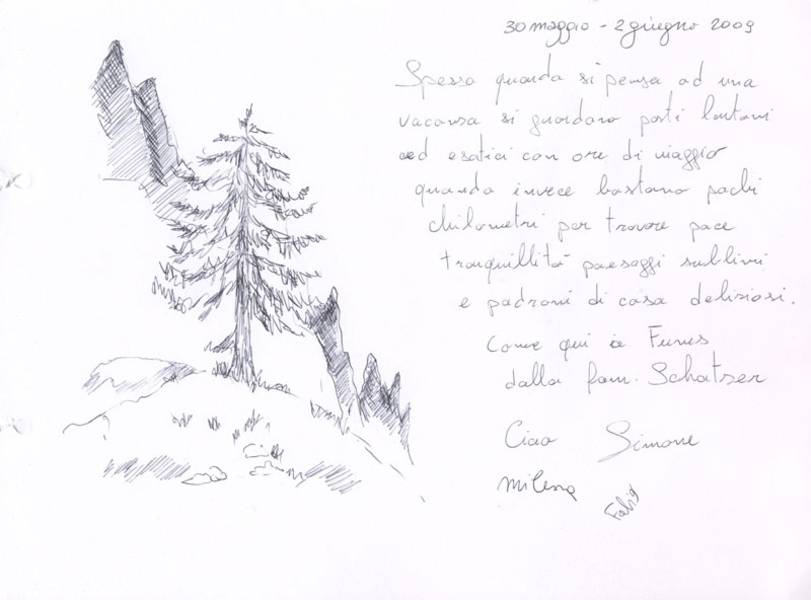 30 maggio - 2 giugno 2009
Spesso quando si pensa ad una
vacanza si guardano posti lontani
ed esotici con ore di viaggio
quando invece bastano pochi
chilometri per trovare pace
tranquillità paesaggi sublimi
e padroni di casa deliziosi.
Come qui a Funes
dalla fam. Schatzer
Ciao Simone
Milena
Fabio